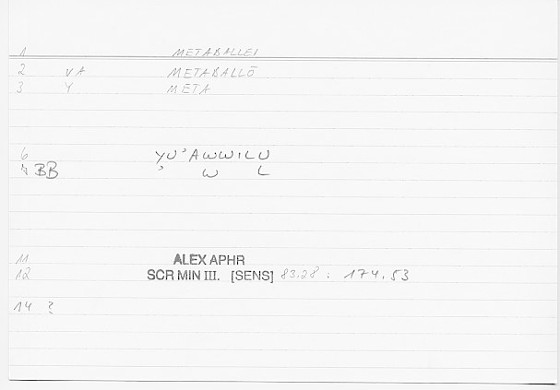 1 METABALLEI
2 VA METABALLŌ
3 Y META
6 YU'AWWILU
BB ' W L
11 ALEX APHR
12 SCR MIN III. [SENS] 83.28 : 174.53
14 ?